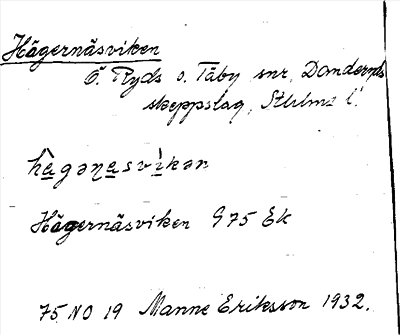 Hägernäsviken
Ö. Ryds o. Täby snr, Danderyds
skeppslag, Sthlms l.
hàgəṇasvìkən
Hägernäsviken G 75 Ek
75 NO 19 Manne Eriksson 1932.